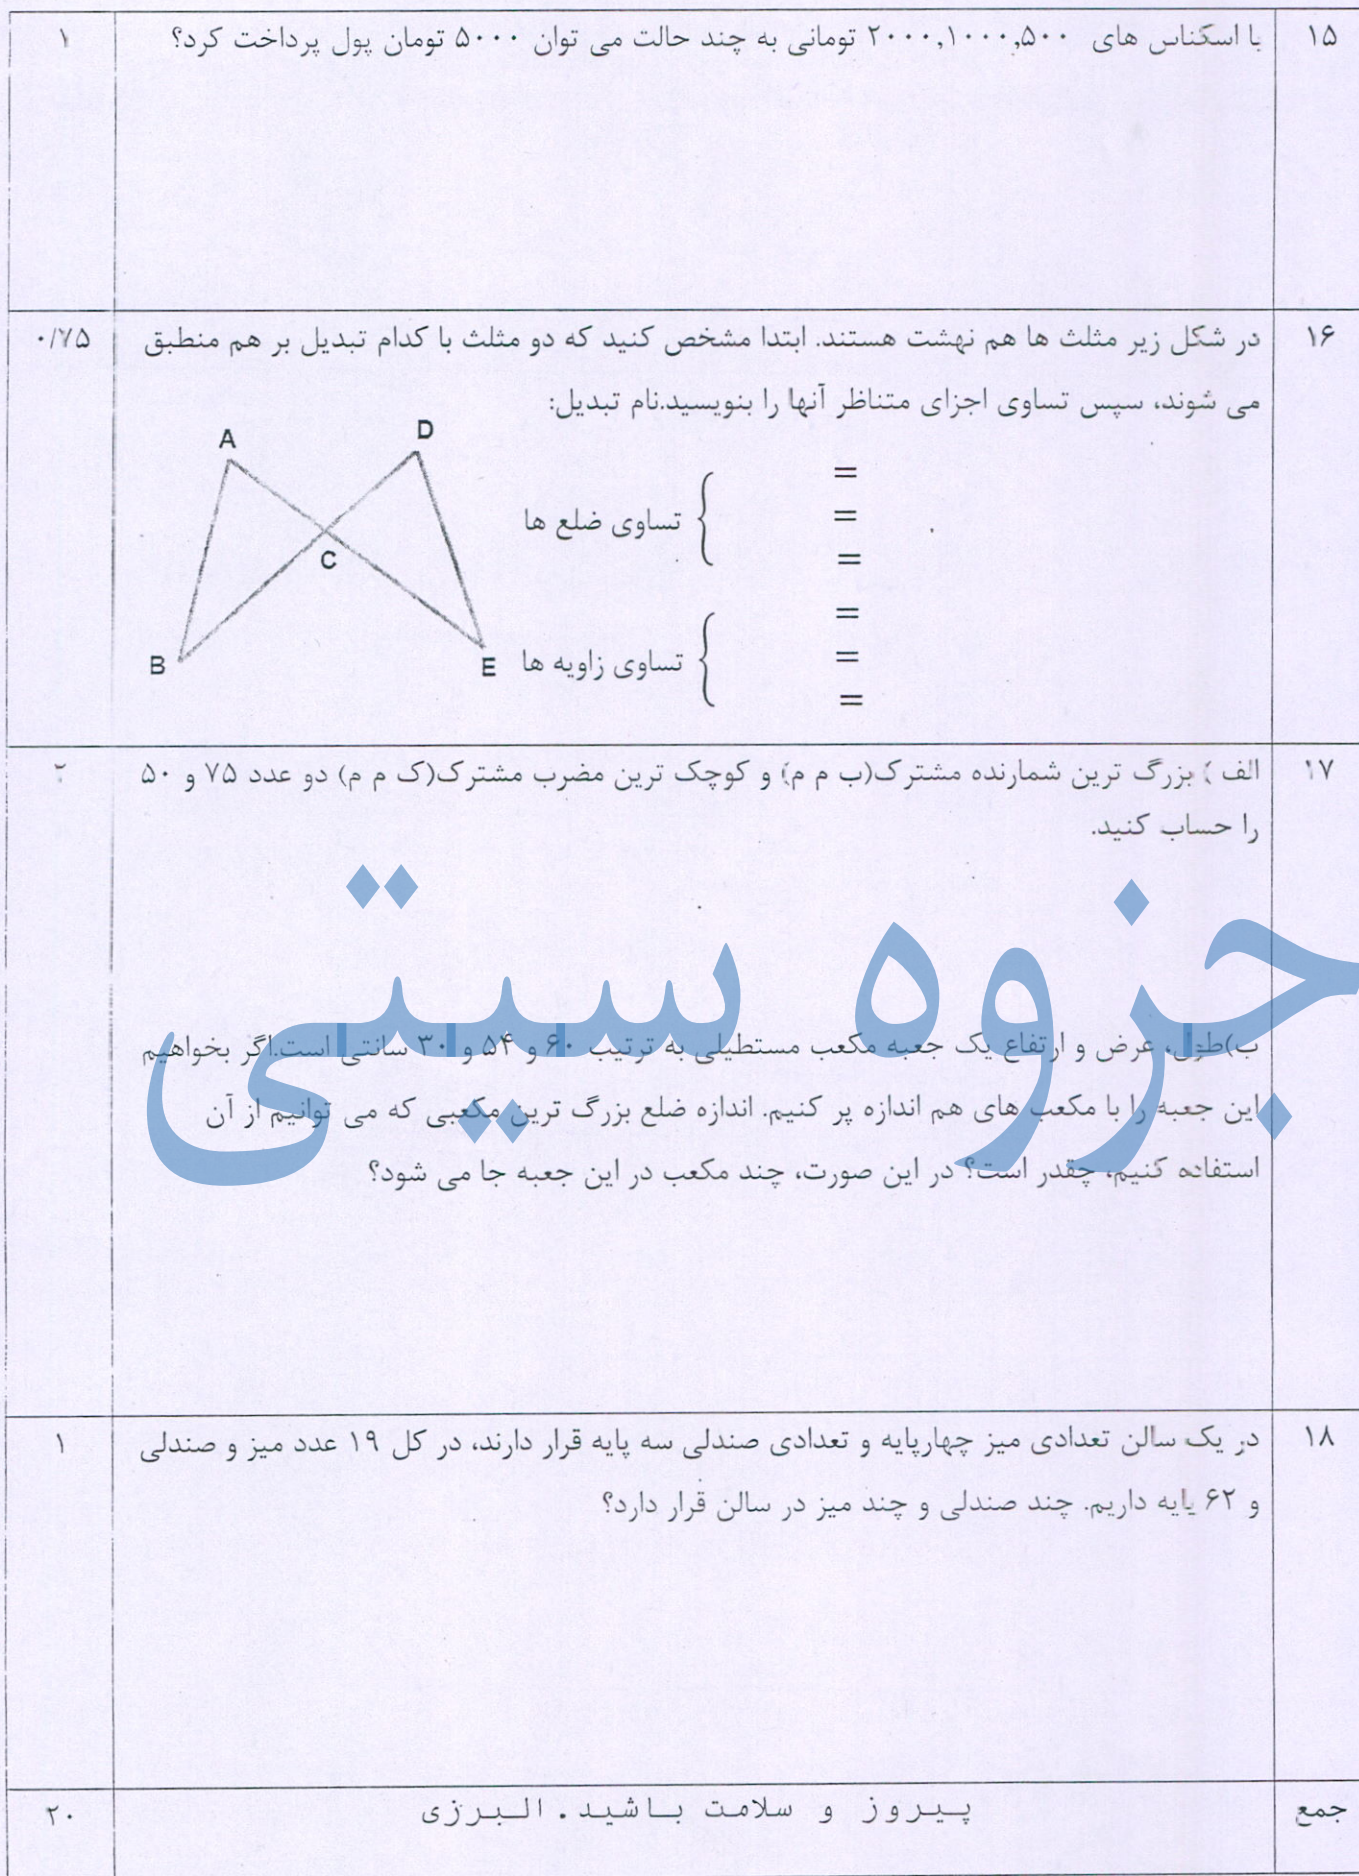 ۱۵ با اسکناس های ۲۰۰۰,۱۰۰۰,۵۰۰ تومانی به چند حالت می توان ۵۰۰۰ تومان پول پرداخت کرد؟ ۱
۱۶ در شکل زیر مثلث ها هم نهشت هستند. ابتدا مشخص کنید که دو مثلث با کدام تبدیل بر هم منطبق ۰/۷۵
می شوند، سپس تساوی اجزای متناظر آنها را بنویسید.نام تبدیل:
A D
=
تساوی ضلع ها { =
C =
=
B E تساوی زاویه ها { =
=
۱۷ الف ) بزرگ ترین شمارنده مشترک(ب م م) و کوچک ترین مضرب مشترک(ک م م) دو عدد ۷۵ و ۵۰ ۲
را حساب کنید.
جزوه سیتی
ب)طول، عرض و ارتفاع یک جعبه مکعب مستطیلی به ترتیب ۶۰ و ۵۴ و ۳۰ سانتی است.اگر بخواهیم
این جعبه را با مکعب های هم اندازه پر کنیم. اندازه ضلع بزرگ ترین مکعبی که می توانیم از آن
استفاده کنیم، چقدر است؟ در این صورت، چند مکعب در این جعبه جا می شود؟
۱۸ در یک سالن تعدادی میز چهارپایه و تعدادی صندلی سه پایه قرار دارند، در کل ۱۹ عدد میز و صندلی ۱
و ۶۲ پایه داریم. چند صندلی و چند میز در سالن قرار دارد؟
جمع پیروز و سلامت باشید. البرزی ۲۰